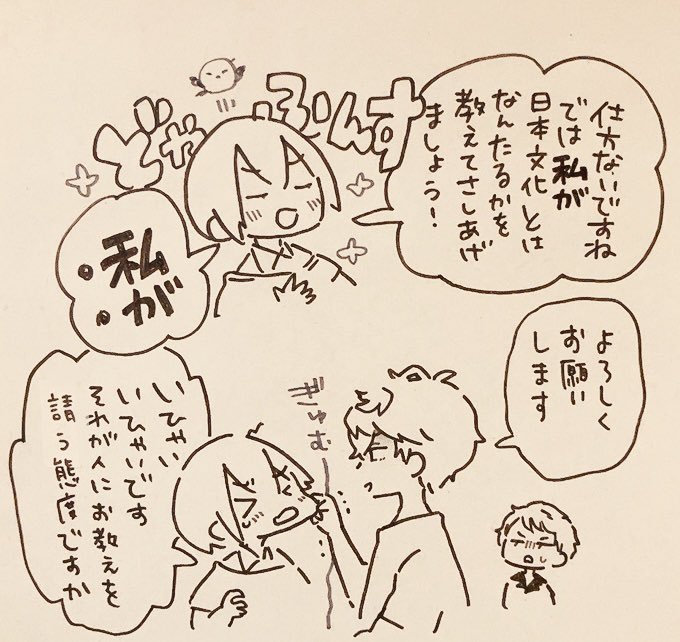 仕方ないですね
では私が
日本文化とは
なんたるかを
教えてさしあげ
ましょう!
ふんす
どや
私が
よろしく
お願い
します
ぎゅむ
いひゃい
いひゃいです
それが人にお教えを
請う態度ですか